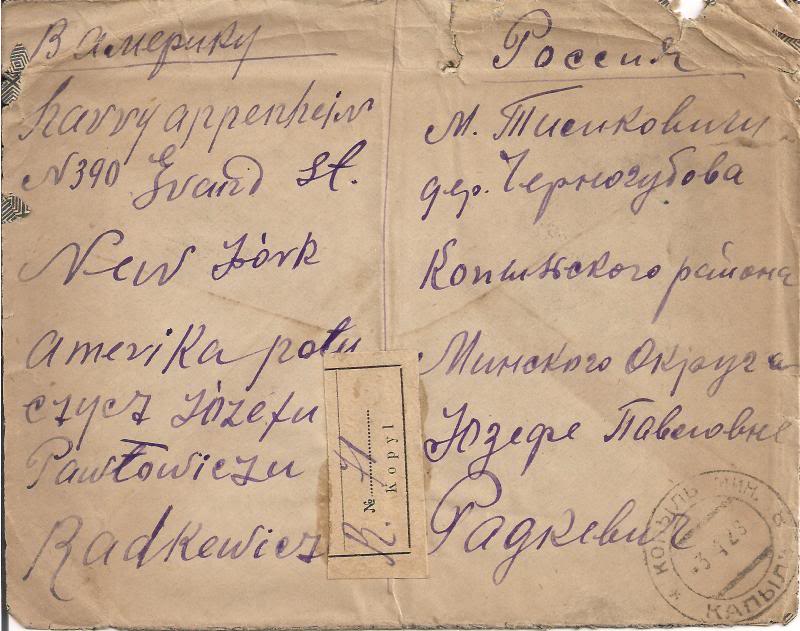 В Америку
harry appenheim
N 390 Grand St.
New Jórk
Amerika połu
czycz Józefu
Pawłowiczu
Radkewicz
Россия
М. Тимковичи
дер. Черногубова
Копыльского района
Минского Округа
Юзефе Павловне
Радкевич
R. № 71
Kopyl
КОПЫЛЬ МИН.
КАПЫЛЬ